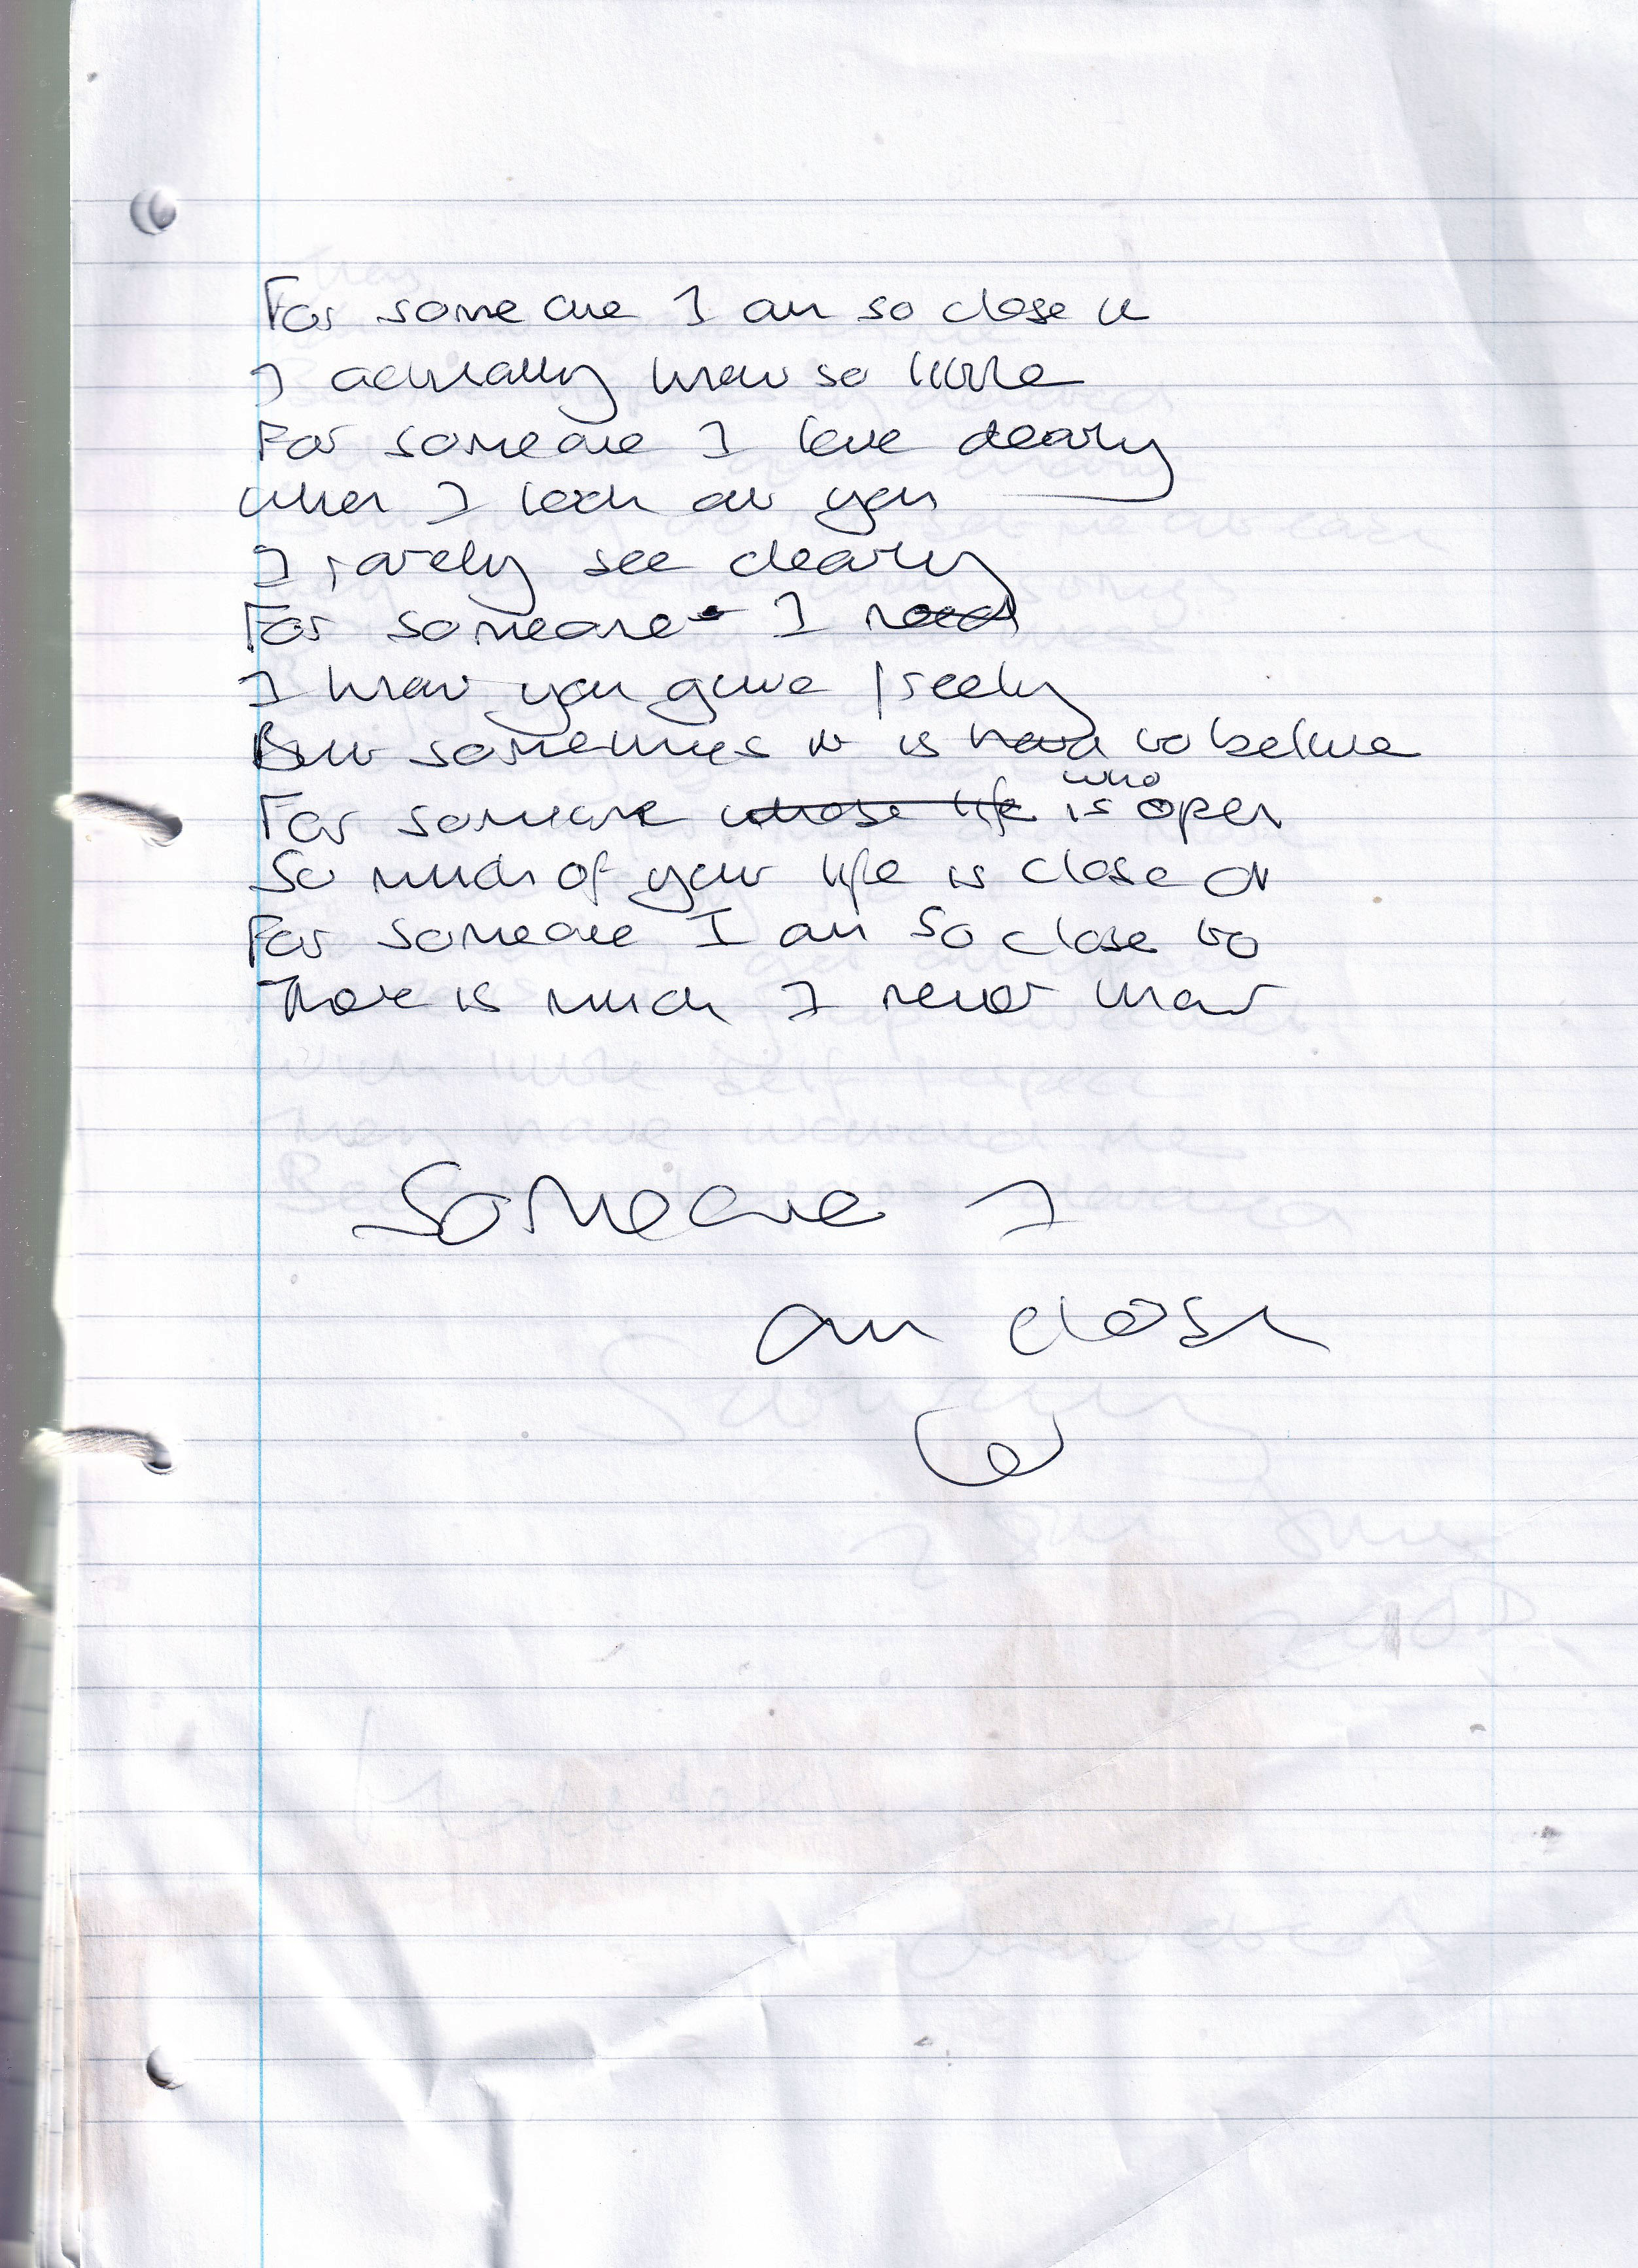 For someone I am so close to
I actually know so little
For someone I love dearly
When I look at you
I rarely see clearly
For someone I need
I know you give freely
But sometimes it is hard to believe
For someone whose life who is open
So much of your life is close
For someone I am so close to
There is much I never know
Someone I
am close
to